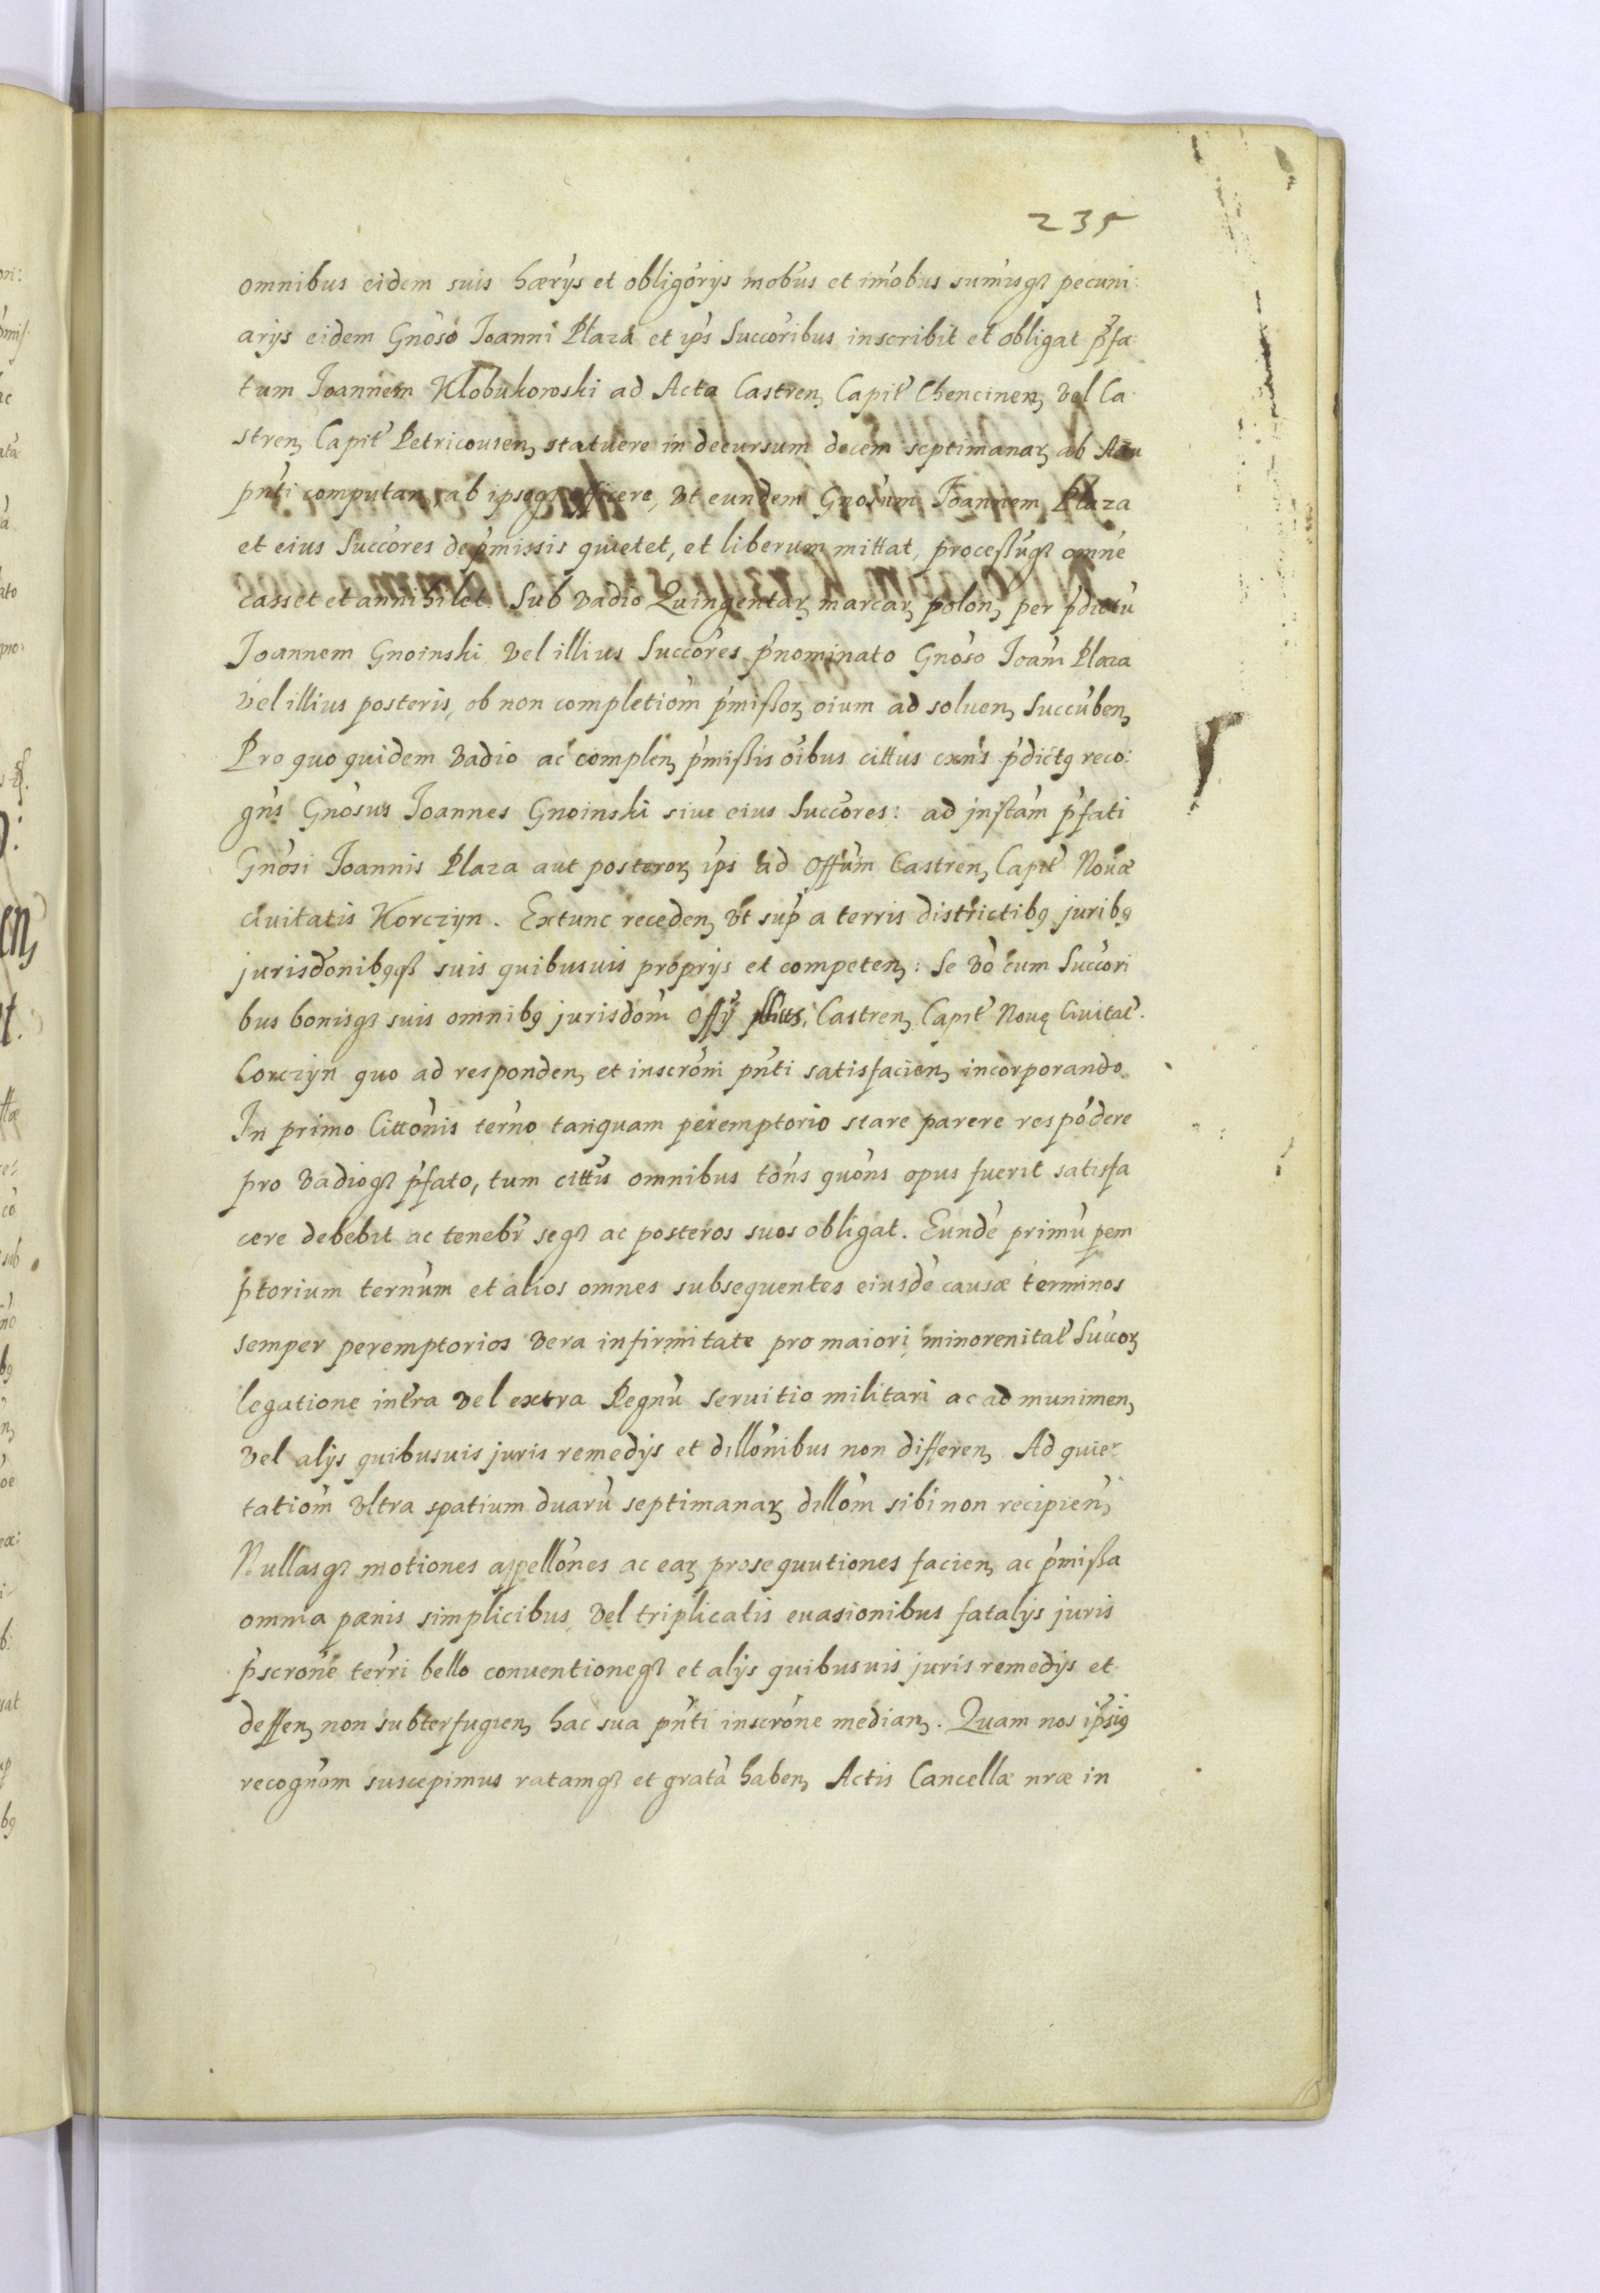 235
omnibus eidem suis hærijs et obligórijs mobús et imobus sumisq3 pecuni:
arijs eidem Gnoso Joanni Płaza et ips Succoribus inscribit et obligat pfa:
tum Joannem Kłobukowski ad Acta Castren, Capit Chencinen, vel Ca:
stren, Capit Petricouien, statuere in decursum decem septimanar, ab Actu
pnti computan, ab ipsoq3 efficere, Vt eundem Gnosum Joannem Płaza
et eius Succores de pmissis quietet, et liberum mittat, proceßúq3 omne
casset et annihilet. Sub Vadio Quingentar, marcar, polon, per pdictu
Joannem Gnoinski Vel illius Succores pnominato Gnoso Joani Płaza
Vel illius posteris, ob non completiom pmißor, oium ad soluen, Succuben,
Pro quo quidem Vadio ac complen, pmißis oibus cittus exns pdict9 reco:
gns Gnosus Joannes Gnoinski siue eius Succores: ad jnstam pfati
Gnosi Joannis Płaza aut posteror, ips ad Offum Castren, Capit Nouæ
Ciuitatis Korczyn. Extunc receden, Vt sup a terris districtib9 jurib9
jurisdonib9q3 suis quibusuis proprijs et competen,: Se Vo cum Succori
bus bonisq3 suis omnib9 jurisdom Offÿ Castren, Capit Nouę Ciuitat.
Corczyn quo ad responden, et inscroni pnti satisfacien, incorporando.
In primo Cittonis terno tanquam peremptorio stare parere respodere
pro Vadioq3 pfato, tum cittus omnibus tons quons opus fuerit satisfa
cere debebit ac tenebr seq3 ac posteros suos obligat. Eunde primu pem
ptorium ternum et alios omnes subsequentes eiusde causæ terminos
semper peremptorios Vera infirmitate pro maiori minorenitat Succor,
legatione intra Vel extra Regnu seruitio militari ac ad munimen,
Vel alijs quibusuis juris remedijs et dillonibus non differen, Ad quie-
tatiom Vltra spatium duaru septimanar, dillom sibi non recipien,
Nullasq3 motiones appellones ac ear, prosequutiones facien, ac pmißa
omnia pœnis simplicibus Vel triplicatis euasionibus fatalijs juris
pscrone terri bello conuentioneq3 et alijs quibusuis juris remedijs et
deffen, non subterfugien, hac sua pnti inscrone median,. Quam nos ipsi9
recognom suscepimus ratamq3 et grata haben, Actis Cancellæ nræ in